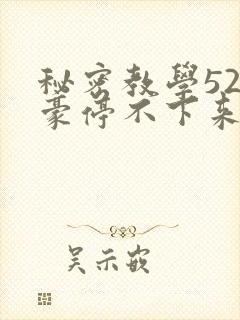 秘密教學52
豪停不下来
吴示嵌